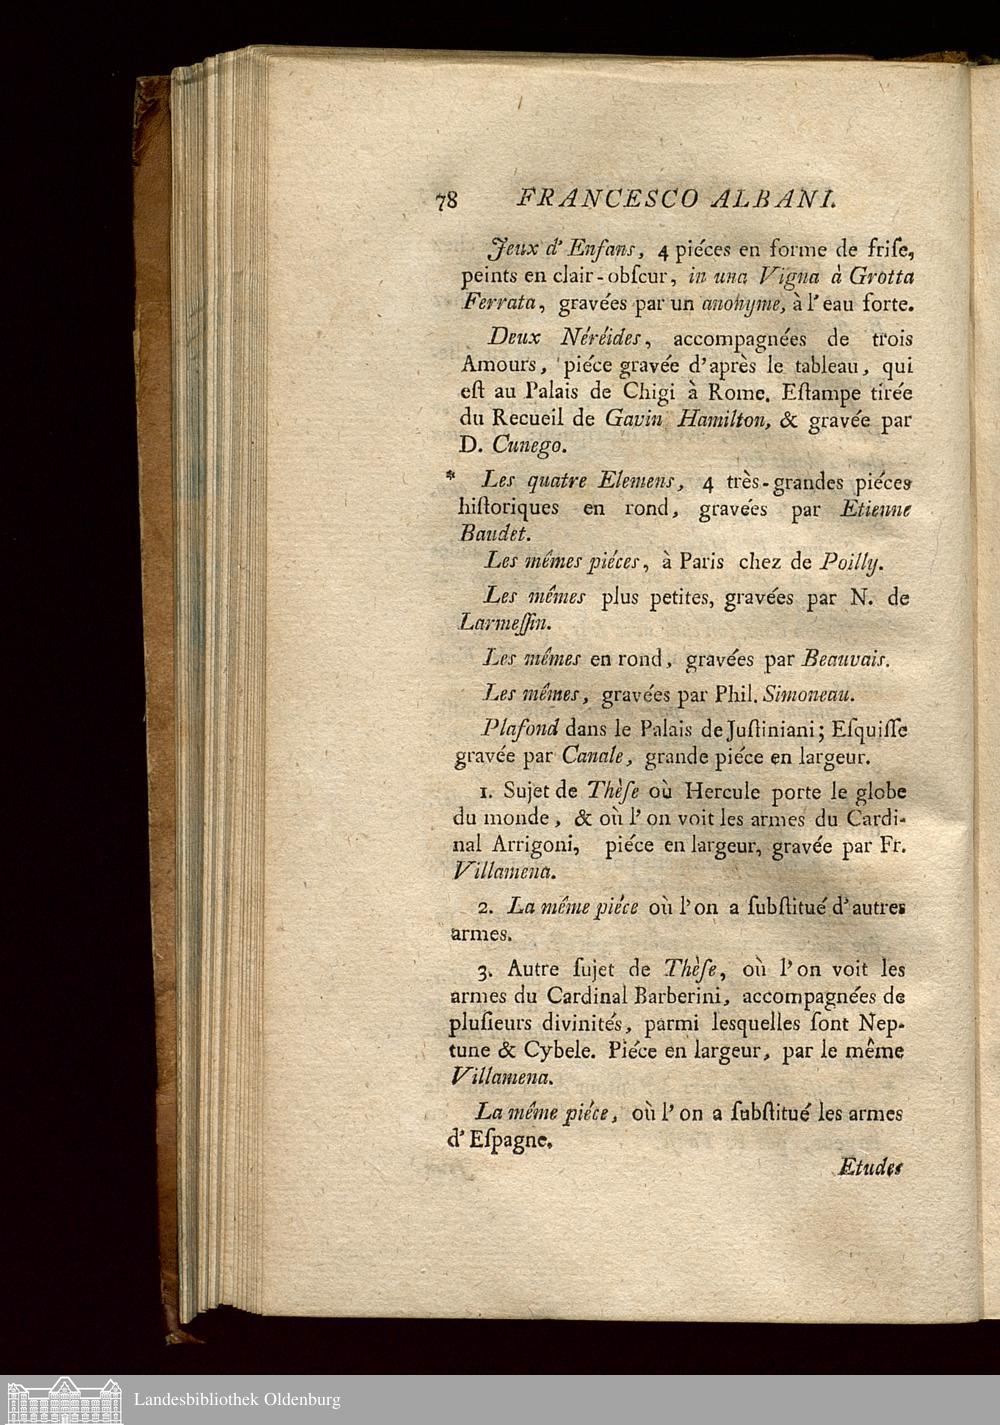 78 FRANCESCO ALBANI.
Jeux d' Enfans, 4 piéces en forme de friſe,
peints en clair-obſcur, in una Vigna à Grotta
Ferrata, gravées par un anonyme, à l'eau forte.
Deux Néréides, accompagnées de trois
Amours, piéce gravée d'après le tableau, qui
eſt au Palais de Chigi à Rome. Eſtampe tirée
du Recueil de Gavin Hamilton, & gravée par
D. Cunego.
* Les quatre Elemens, 4 très-grandes piéces
hiſtoriques en rond, gravées par Etienne
Baudet.
Les mêmes piéces, à Paris chez de Poilly.
Les mêmes plus petites, gravées par N. de
Larmeſſin.
Les mêmes en rond, gravées par Beauvais.
Les mêmes, gravées par Phil. Simoneau.
Plafond dans le Palais de Juſtiniani; Eſquiſſe
gravée par Canale, grande piéce en largeur.
1. Sujet de Thèſe où Hercule porte le globe
du monde, & où l'on voit les armes du Cardi-
nal Arrigoni, piéce en largeur, gravée par Fr.
Villamena.
2. La même piéce où l'on a ſubſtitué d'autres
armes.
3. Autre ſujet de Thèſe, où l'on voit les
armes du Cardinal Barberini, accompagnées de
pluſieurs divinités, parmi lesquelles ſont Nep-
tune & Cybele. Piéce en largeur, par le même
Villamena.
La même piéce, où l'on a ſubſtitué les armes
d'Eſpagne.
Etudes
Landesbibliothek Oldenburg